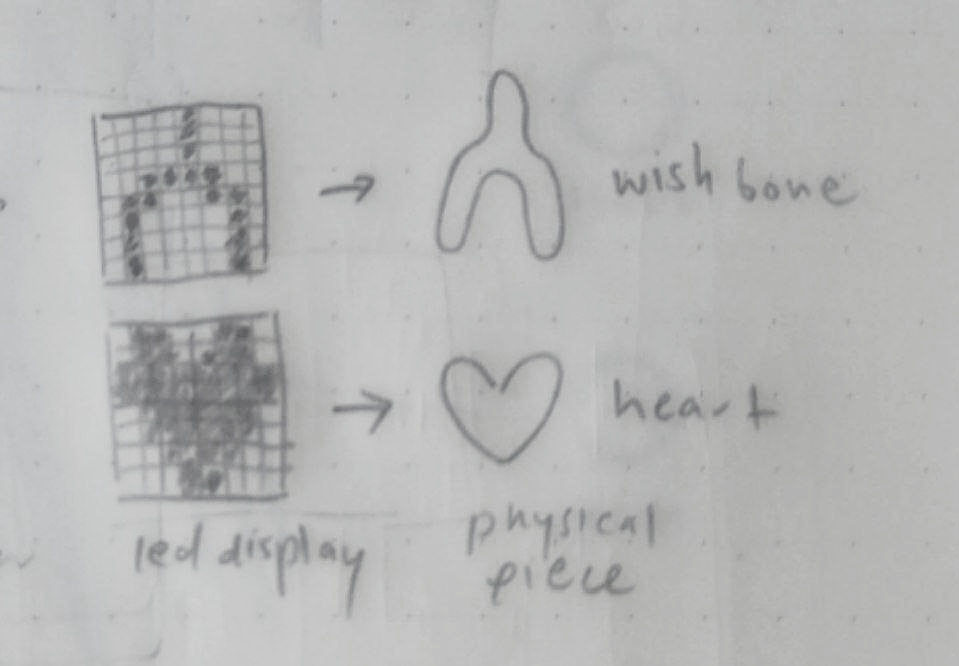 wish bone
heart
led display
physical
piece